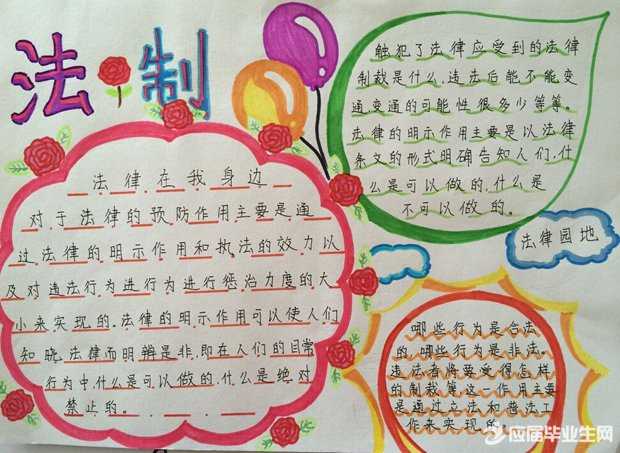 法制
法律在我身边
对于法律的预防作用主要是通
过法律的明示作用和执法的效力以
及对违法行为进行为进行惩治力度的大
小来实现的.法律的明示作用可以使人们
知晓法律而明辨是非,即在人们的日常
行为中,什么是可以做的.什么是绝对
禁止的。
触犯了法律应受到的法律
制裁是什么.违法后能不能变
通变通的可能性很多少等等。
法律的明示作用主要是以法律
条文的形式明确告知人们,什
么是可以做的.什么是
不可以做的。
法律园地
哪些行为是合法
的.哪些行为是非法。
违法者将要受得怎样
的制裁等这一作用主要
是通过立法和普法工
作来实现的。
应届毕业生网